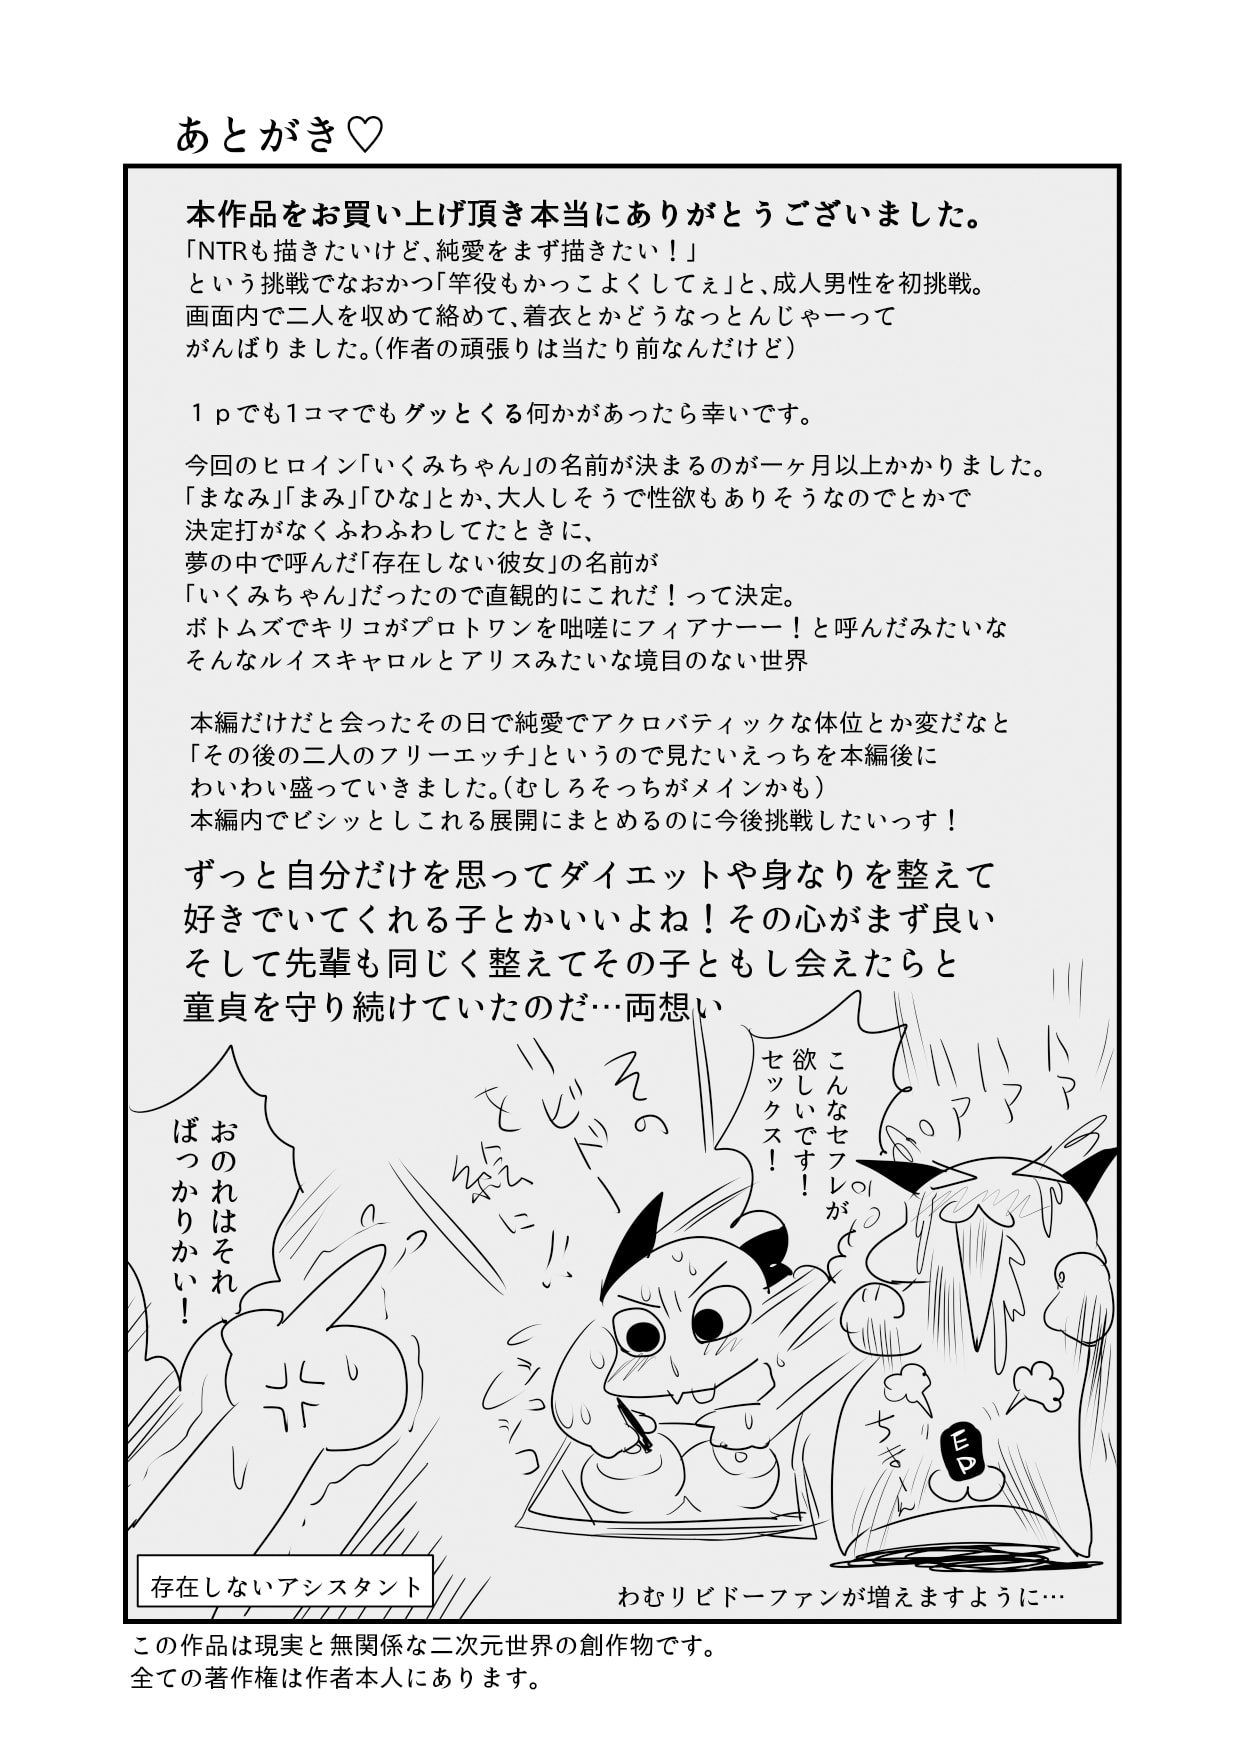 あとがき♡
本作品をお買い上げ頂き本当にありがとうございました。
「NTRも描きたいけど、純愛をまず描きたい！」
という挑戦でなおかつ「竿役もかっこよくしてぇ」と、成人男性を初挑戦。
画面内で二人を収めて絡めて、着衣とかどうなっとんじゃーって
がんばりました。（作者の頑張りは当たり前なんだけど）
１ｐでも1コマでもグッとくる何かがあったら幸いです。
今回のヒロイン「いくみちゃん」の名前が決まるのが一ヶ月以上かかりました。
「まなみ」「まみ」「ひな」とか、大人しそうで性欲もありそうなのでとかで
決定打がなくふわふわしてたときに、
夢の中で呼んだ「存在しない彼女」の名前が
「いくみちゃん」だったので直観的にこれだ！って決定。
ボトムズでキリコがプロトワンを咄嗟にフィアナーー！と呼んだみたいな
そんなルイスキャロルとアリスみたいな境目のない世界
本編だけだと会ったその日で純愛でアクロバティックな体位とか変だなと
「その後の二人のフリーエッチ」というので見たいえっちを本編後に
わいわい盛っていきました。（むしろそっちがメインかも）
本編内でビシッとしこれる展開にまとめるのに今後挑戦したいっす！
ずっと自分だけを思ってダイエットや身なりを整えて
好きでいてくれる子とかいいよね！その心がまず良い
そして先輩も同じく整えてその子ともし会えたらと
童貞を守り続けていたのだ…両想い
こんなセフレが
欲しいです！
セックス！
ハァ
ハァ
ハァ
その
リビドー
と
に!!
おのれはそれ
ばっかりかい！
EP
存在しないアシスタント
わむリビドーファンが増えますように…
この作品は現実と無関係な二次元世界の創作物です。
全ての著作権は作者本人にあります。